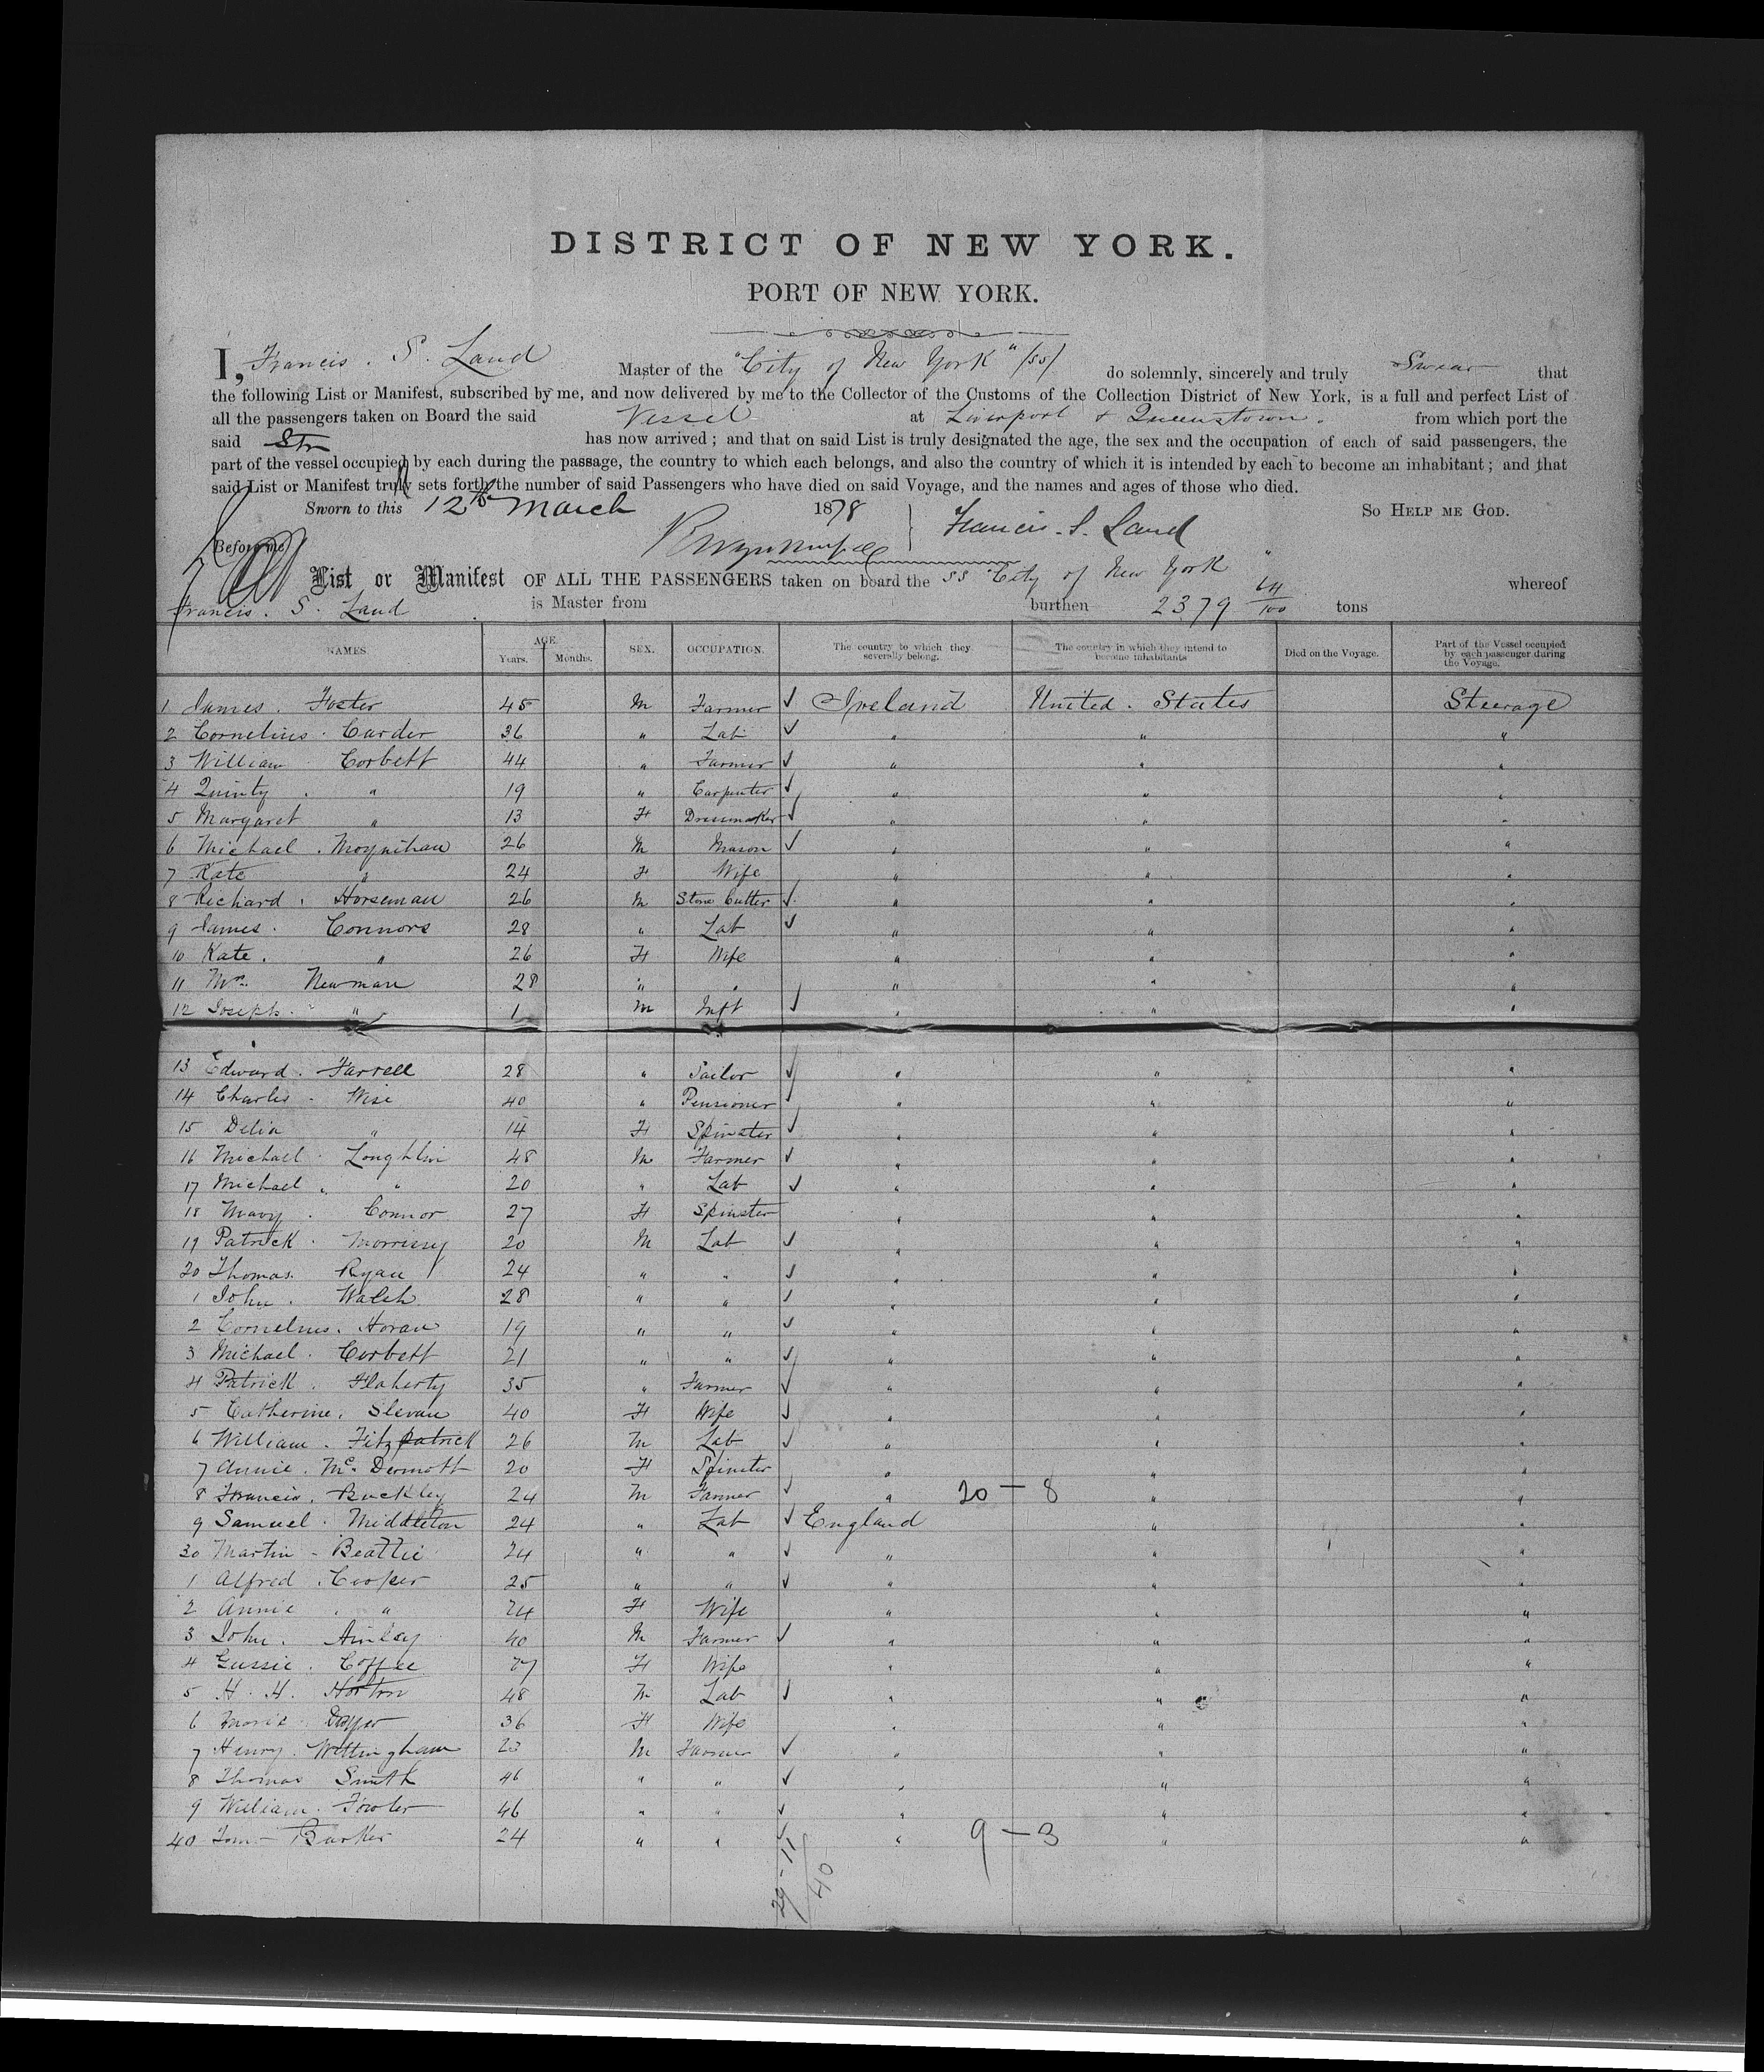 DISTRICT OF NEW YORK.
PORT OF NEW YORK.
I, Francis. S. Land Master of the "City of New York" (SS) do solemnly, sincerely and truly Swear that
the following List or Manifest, subscribed by me, and now delivered by me to the Collector of the Customs of the Collection District of New York, is a full and perfect List of
all the passengers taken on Board the said Vessel at Liverpool & Queenstown. from which port the
said Str has now arrived; and that on said List is truly designated the age, the sex and the occupation of each of said passengers, the
part of the vessel occupied by each during the passage, the country to which each belongs, and also the country of which it is intended by each to become an inhabitant; and that
said List or Manifest truly sets forth the number of said Passengers who have died on said Voyage, and the names and ages of those who died.
Sworn to this 12th March 1878 Francis. S. Land So HELP ME GOD.
Before me
List or Manifest OF ALL THE PASSENGERS taken on board the SS City of New York" whereof
Francis. S. Land is Master from burthen 2379 64/100 tons
NAMES. AGE. Years. Months. SEX. OCCUPATION. The country to which they severally belong. The country in which they intend to become inhabitants Died on the Voyage. Part of the Vessel occupied by each passenger during the Voyage.
1 James. Foster 45 M Farmer ✓ Ireland United. States Steerage
2 Cornelius. Carder 36 " Lab ✓ " " "
3 William Corbett 44 " Farmer ✓ " " "
4 Quinty. " 19 " Carpenter ✓ " " "
5 Margaret " 13 F Dressmaker ✓ " " "
6 Michael. Moynihan 26 M Mason ✓ " " "
7 Kate " 24 F Wife " " "
8 Richard. Horseman 26 M Stone Cutter ✓ " " "
9 James. Connors 28 " Lab ✓ " " "
10 Kate. " 26 F Wife " " "
11 Mrs. Newman 28 " " " " "
12 Joseph. " 1 M Inft ✓ " " "
13 Edward. Farrell 28 " Sailor ✓ " " "
14 Charles. Wise 40 " Pensioner ✓ " " "
15 Delia " 14 F Spinster ✓ " " "
16 Michael. Loughlin 48 M Farmer ✓ " " "
17 Michael. " 20 " Lab ✓ " " "
18 Mary. Connor 27 F Spinster " " "
19 Patrick. Morrissy 20 M Lab ✓ " " "
20 Thomas. Ryan 24 " " ✓ " " "
1 John. Walsh 28 " " ✓ " " "
2 Cornelius. Horan 19 " " ✓ " " "
3 Michael. Corbett 21 " " ✓ " " "
4 Patrick. Flaherty 35 " Farmer ✓ " " "
5 Catherine. Slevan 40 F Wife ✓ " " "
6 William. Fitzpatrick 26 M Lab ✓ " " "
7 Annie. McDermott 20 F Spinster " " "
8 Francis. Buckley 24 M Farmer ✓ " 20 - 8 " "
9 Samuel. Middleton 24 " Lab ✓ England " "
30 Martin - Beattie 24 " " ✓ " " "
1 Alfred. Cooper 25 " " ✓ " " "
2 Annie. " 24 F Wife " " "
3 John. Ainley 40 M Farmer ✓ " " "
4 Gussie. Coffee 27 F Wife " " "
5 H. H. Horton 48 M Lab ✓ " " "
6 36 F Wife " " "
7 Henry. Wittingham 23 M Farmer ✓ " " "
8 Thomas Smith 46 " " ✓ " " "
9 William. Fowler 46 " " ✓ " " "
40 Tom - Barker 24 " " ✓ " 9 - 3 " "
29 - 11
40